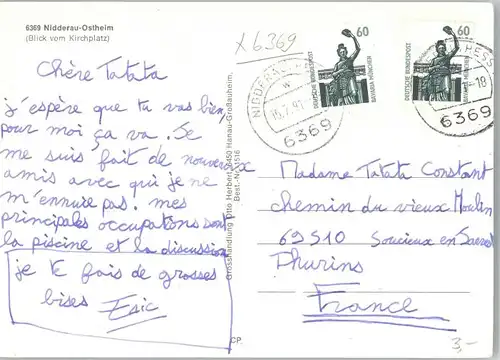 6369 Nidderau-Ostheim
(Blick vom Kirchplatz)
x 6369
60
60
DEUTSCHE BUNDESPOST
BAVARIA MÜNCHEN
DEUTSCHE BUNDESPOST
6369
6369
Chère Tatata
j'espère que tu vas bien,
pour moi ça va. Je
me suis fait de nouveaux
amis avec qui je ne
m'ennuie pas. mes
principales occupations sont
la piscine et la discussion
je te fais de grosses
bises Eric
Grosshandlung Otto Herbert, 6450 Hanau-Großauheim,
Best.-Nr. 1516
Madame Tatata Constant
chemin du vieux Moulin
69510 Soucieux en Jarrest
Thurins
France
3,-
CP.